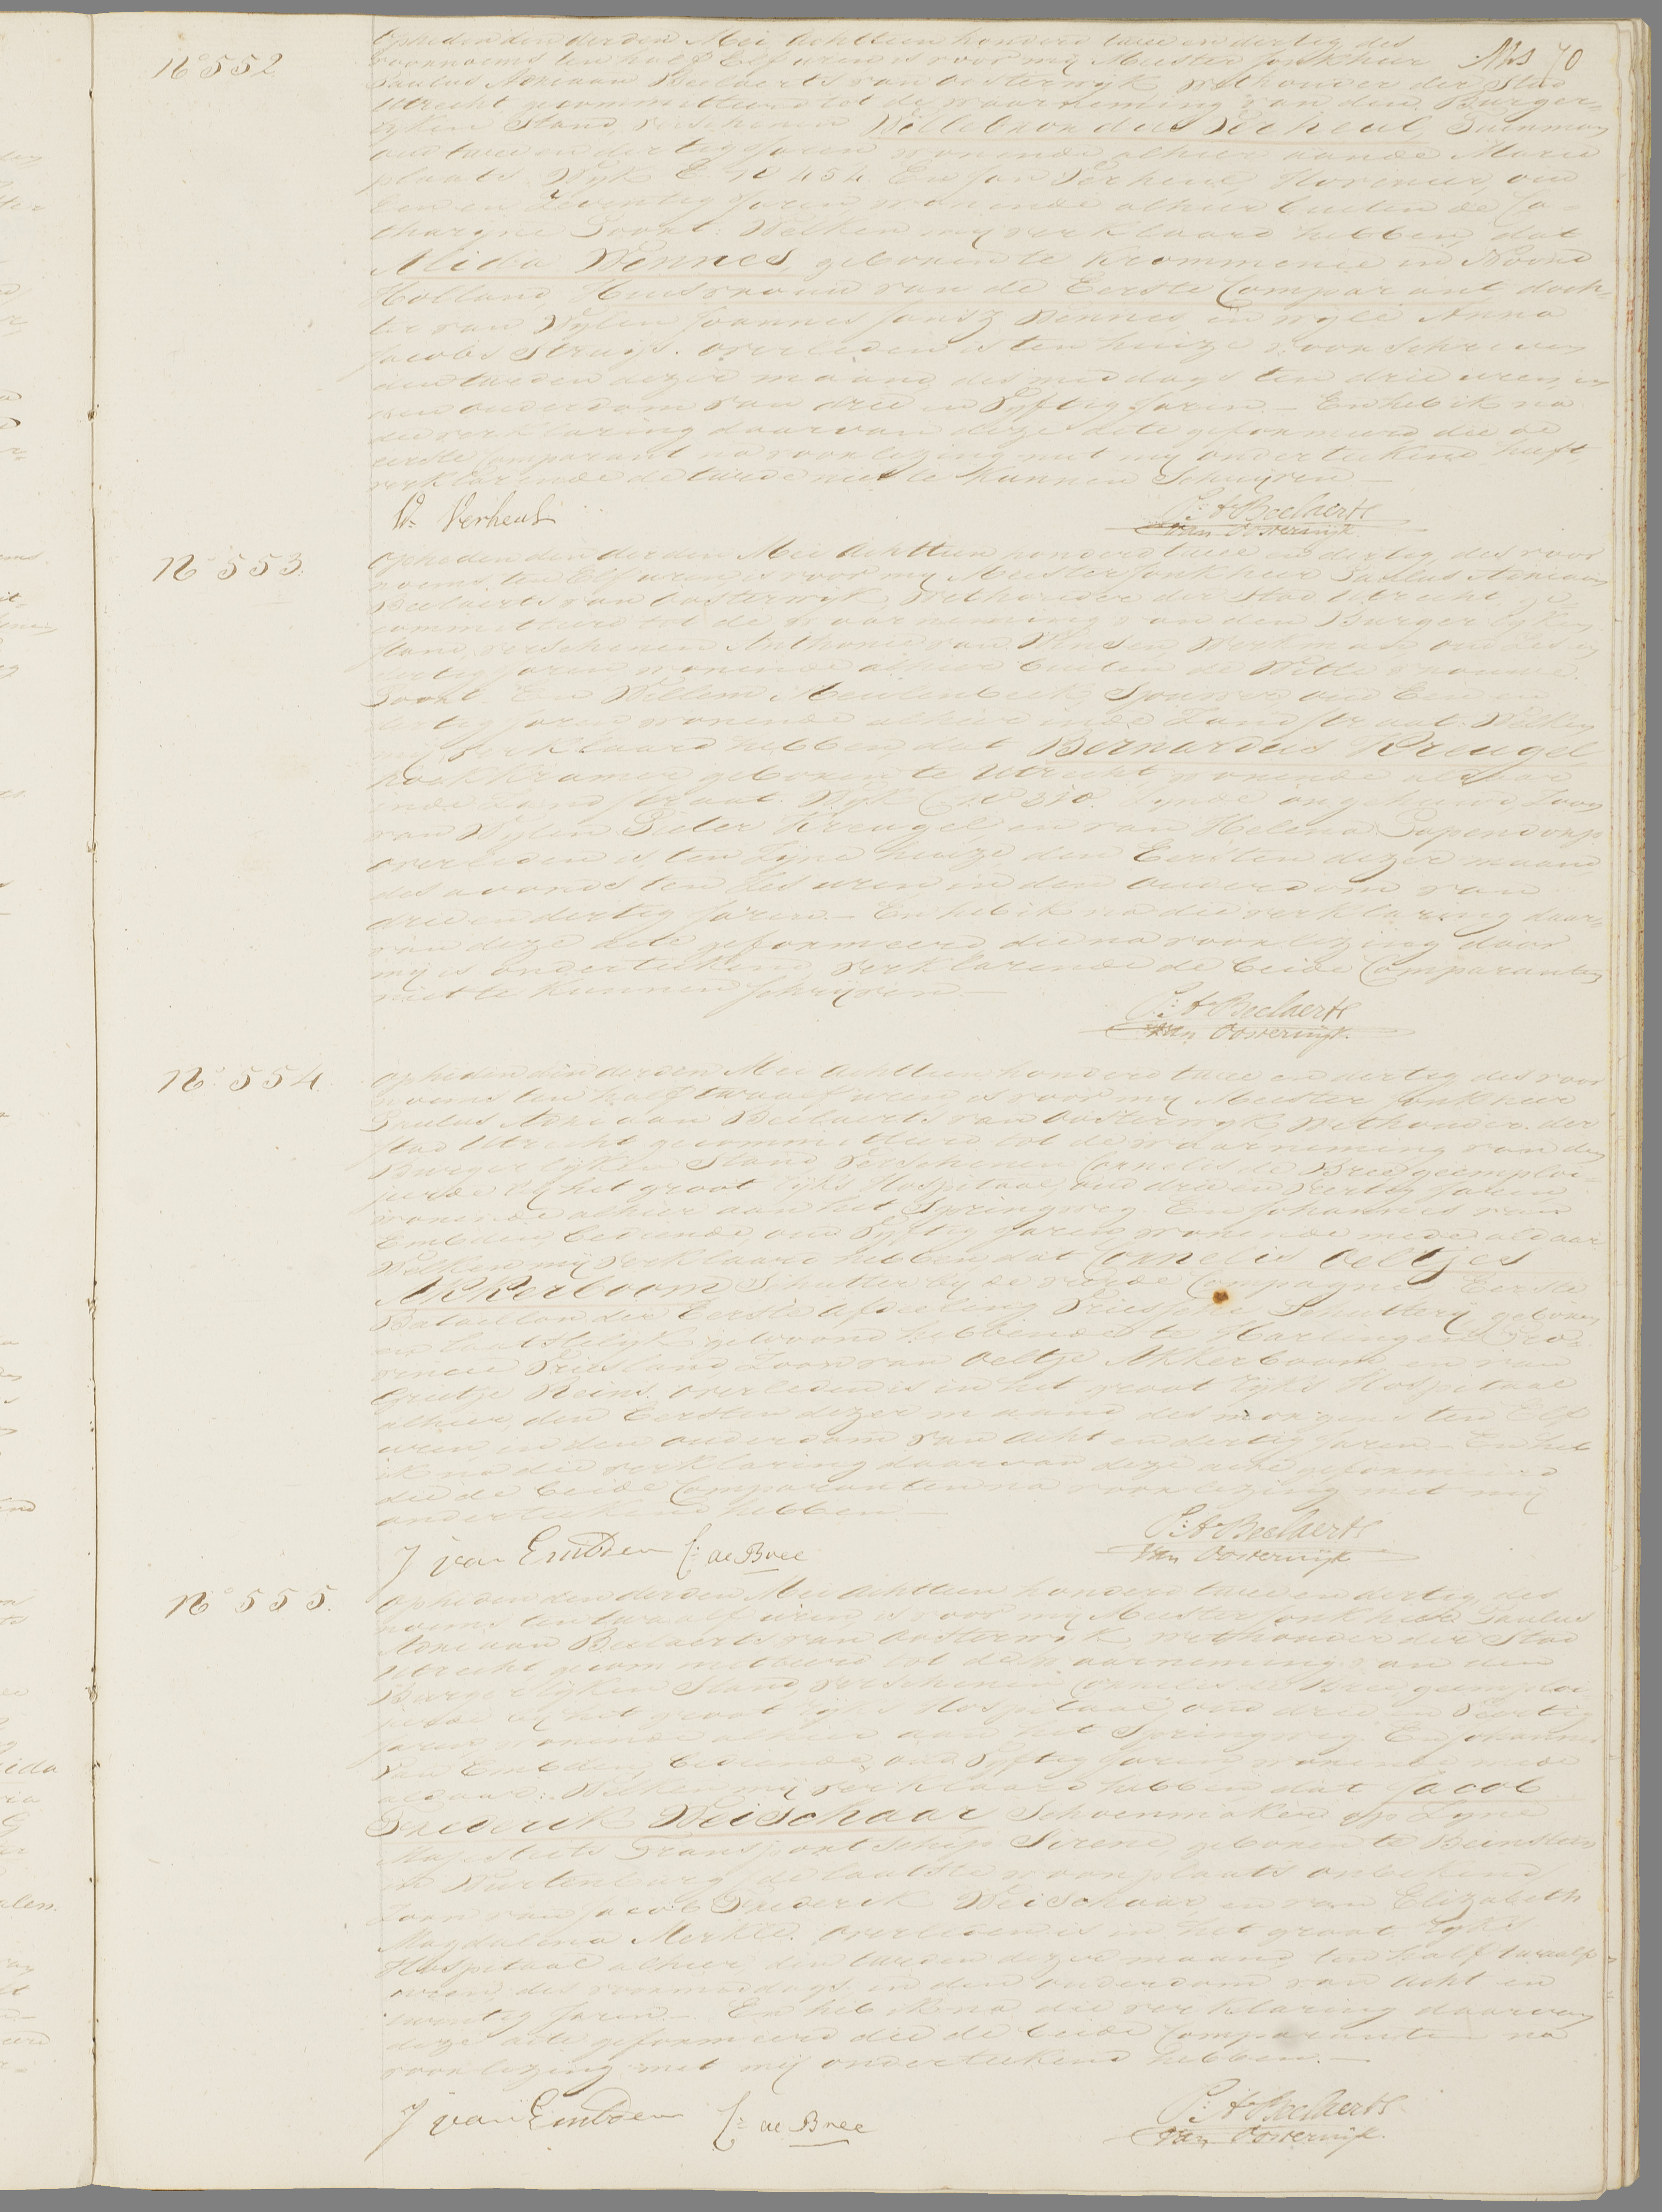 N° 552
Op heden den derden Mei Achttien honderd twee en dertig, des
voornoems ten half Elf uren is voor my Meester Jonkheer
Paulus Adriaan Beelaerts van Oosterwijk Wethouder der Stad
Utrecht gecommitteerd tot de waarneming van den Burger-
lyken Stand, verschenen Willebrordus Verheul, Tuinman
oud twee en dertig Jaren wonende alhier aan de Marie
plaats Wyk E N° 454. En Jan Verheul, Hovenier, oud
een en Zeventig Jaren, wonende alhier buiten de Ca-
tharyne Poort: Welken my verklaard hebben, dat
Alida Bennes, geboren te Krommenie in Noord
Holland, Huisvrouw van de Eerste Comparant, doch-
ter van Wylen Joannes Jansz Bennes en wyle Anna
Jacobs Struijs. overleden is ten huize voorschreven
den tweeden dezer maand des middags ten drie uren, in
den ouderdom van drie en Vyftig Jaren - En heb ik na
die verklaring daarvan deze Acte geformeerd die de
eerste Comparant na voorlezing met my onderteekend heeft
verklarende de tweede niet te kunnen Schryven
W. Verheul
P: A: Beelaerts
van Oosterwijk
N° 553.
Op heden den derden Mei Achttien honderd twee en dertig, des voor
noems, ten Elf uren is voor my Meester Jonkheer Paulus Adriaan
Beelaerts van Oosterwyk, Wethouder der Stad Utrecht, ge-
committeerd tot de waarneming van den Burgerlyken
Stand, verschenen Anthonie van Winsen, Werkman oud Zes en
dertig Jaren wonende alhier buiten de Witte vrouwe
Poort. En Willem Meulenbeek, Sjouwer, oud Een en
dertig Jaren wonende alhier inde Zand straat. Welken
my verklaard hebben, dat Bernardus Kreugel
koek Kramer geboren te Utrecht wonende aldaar
inde Zand straat. Wijk C N° 310. Zynde ongehuwd, Zoon
van Wylen Pieter Kreugel en van Helena Papendorp.
overleden is ten Zyne huize den Eersten dezer maand
des avonds ten Zes uren in den ouderdom van
drie en dertig Jaren. - En heb ik na die verklaring daar-
van deze acte geformeerd die na voorlezing door
my is onderteekend, verklarende de beide Comparanten
niet te kunnen Schryven.
P: A: Beelaerts
van Oosterwijk.
N° 554.
Op heden den derden Mei Achttien honderd twee en dertig, des voor
noems ten half twaalf uren is voor my Meester Jonkheer
Paulus Adriaan Beelaerts van Oosterwyk Wethouder der
Stad Utrecht gecommitteerd tot de waarneming van den
Burgerlijken Stand, verschenen Cornelis de Bree geemploi-
jeerde by het groot Ryks Hospitaal, oud drie en Veertig Jaren
wonende alhier aan het Springweg. En Johannes van
Embden, bediende, oud Vyftig Jaren wonende mede aldaar
Welken my verklaard hebben dat Cornelis Oeltjes
Akkerboom, Schutter by de vierde Compagnie Eerste
Bataillon der Eerste afdeeling Friesche Schuttery, geboren
en laatstelyk gewoond hebbende te Harlingen Pro-
vincie Friesland, Zoon van Oeltje Akkerboom en van
Grietje Reins. overleden is in het groot Ryks Hospitaal
alhier, den Eersten dezer maand des morgens ten Elf
uren, in den ouderdom van acht en dertig Jaren. - En heb
ik na die verklaring daarvan deze acte geformeerd
die de beide Comparanten na voorlezing met my
onderteekend hebben.
J van Embden C: de Bree
P: A: Beelaerts
van Oosterwijk
N° 555.
Op heden den derden Mei Achttien honderd twee en dertig, des
noems ten twaalf uren, is voor my Meester Jonkheer Paulus
Adriaan Beelaerts van Oosterwyk Wethouder der Stad
Utrecht gecommitteerd tot de waarneming van den
Burgerlyken Stand, verschenen Cornelis de Bree geemploi-
jeerde by het groot Ryks Hospitaal, oud drie en Veertig
Jaren wonende alhier aan het Springweg. En Johannes
van Embden, bediende, oud Vyftig Jaren wonende mede
aldaar: Welken my verklaard hebben, dat Jacob
Frederik Weischaar Schoenmaker op Zyne
Majesteits Transportschip Sirene, geboren te Beinstein
in Wurtemburg, de laatste woonplaats onbekend
Zoon van Jacob Frederik Weischaar, en van Elizabeth
Magdalena Merkle. overleden is in het groot Ryks
Hospitaal alhier, den tweeden dezer maand ten half twaalf
uren des voormiddags in den ouderdom van Acht en
twintig Jaren. - En heb ik na die verklaring daarvan
deze acte geformeerd die de beide Comparanten na
voorlezing met my onderteekend hebben.
J van Embden C: de Bree
P: A: Beelaerts
van Oosterwijk.